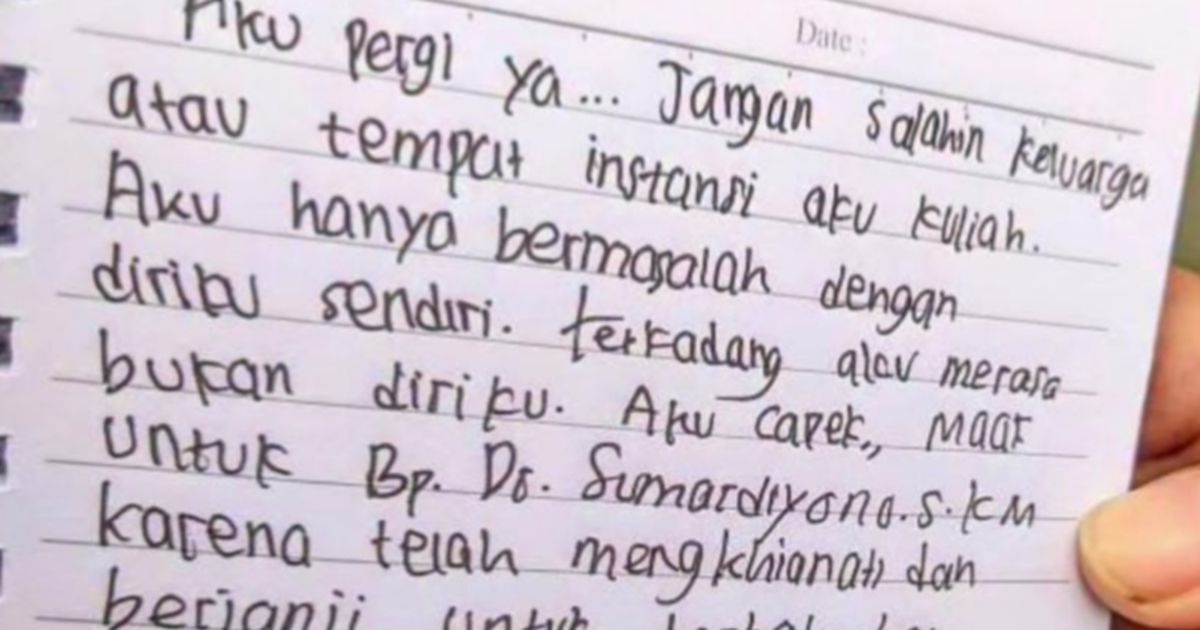 Date :
Aku pergi ya... Jangan salahin keluarga
atau tempat instansi aku kuliah.
Aku hanya bermasalah dengan
diriku sendiri. terkadang akv merasa
bukan diriku. Aku capek,, maaf
untuk Bp. Dr. Sumardiyono.S.KM
karena telah mengkhianati dan
berjanji untuk